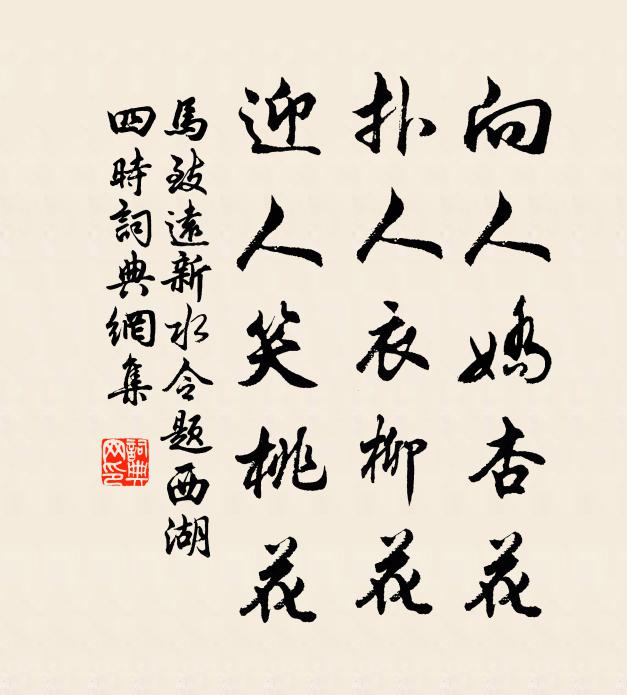 向人嬌杏花
扑人衣柳花
迎人笑桃花
馬致遠新水令題西湖
四時詞典網集
詞典
网印